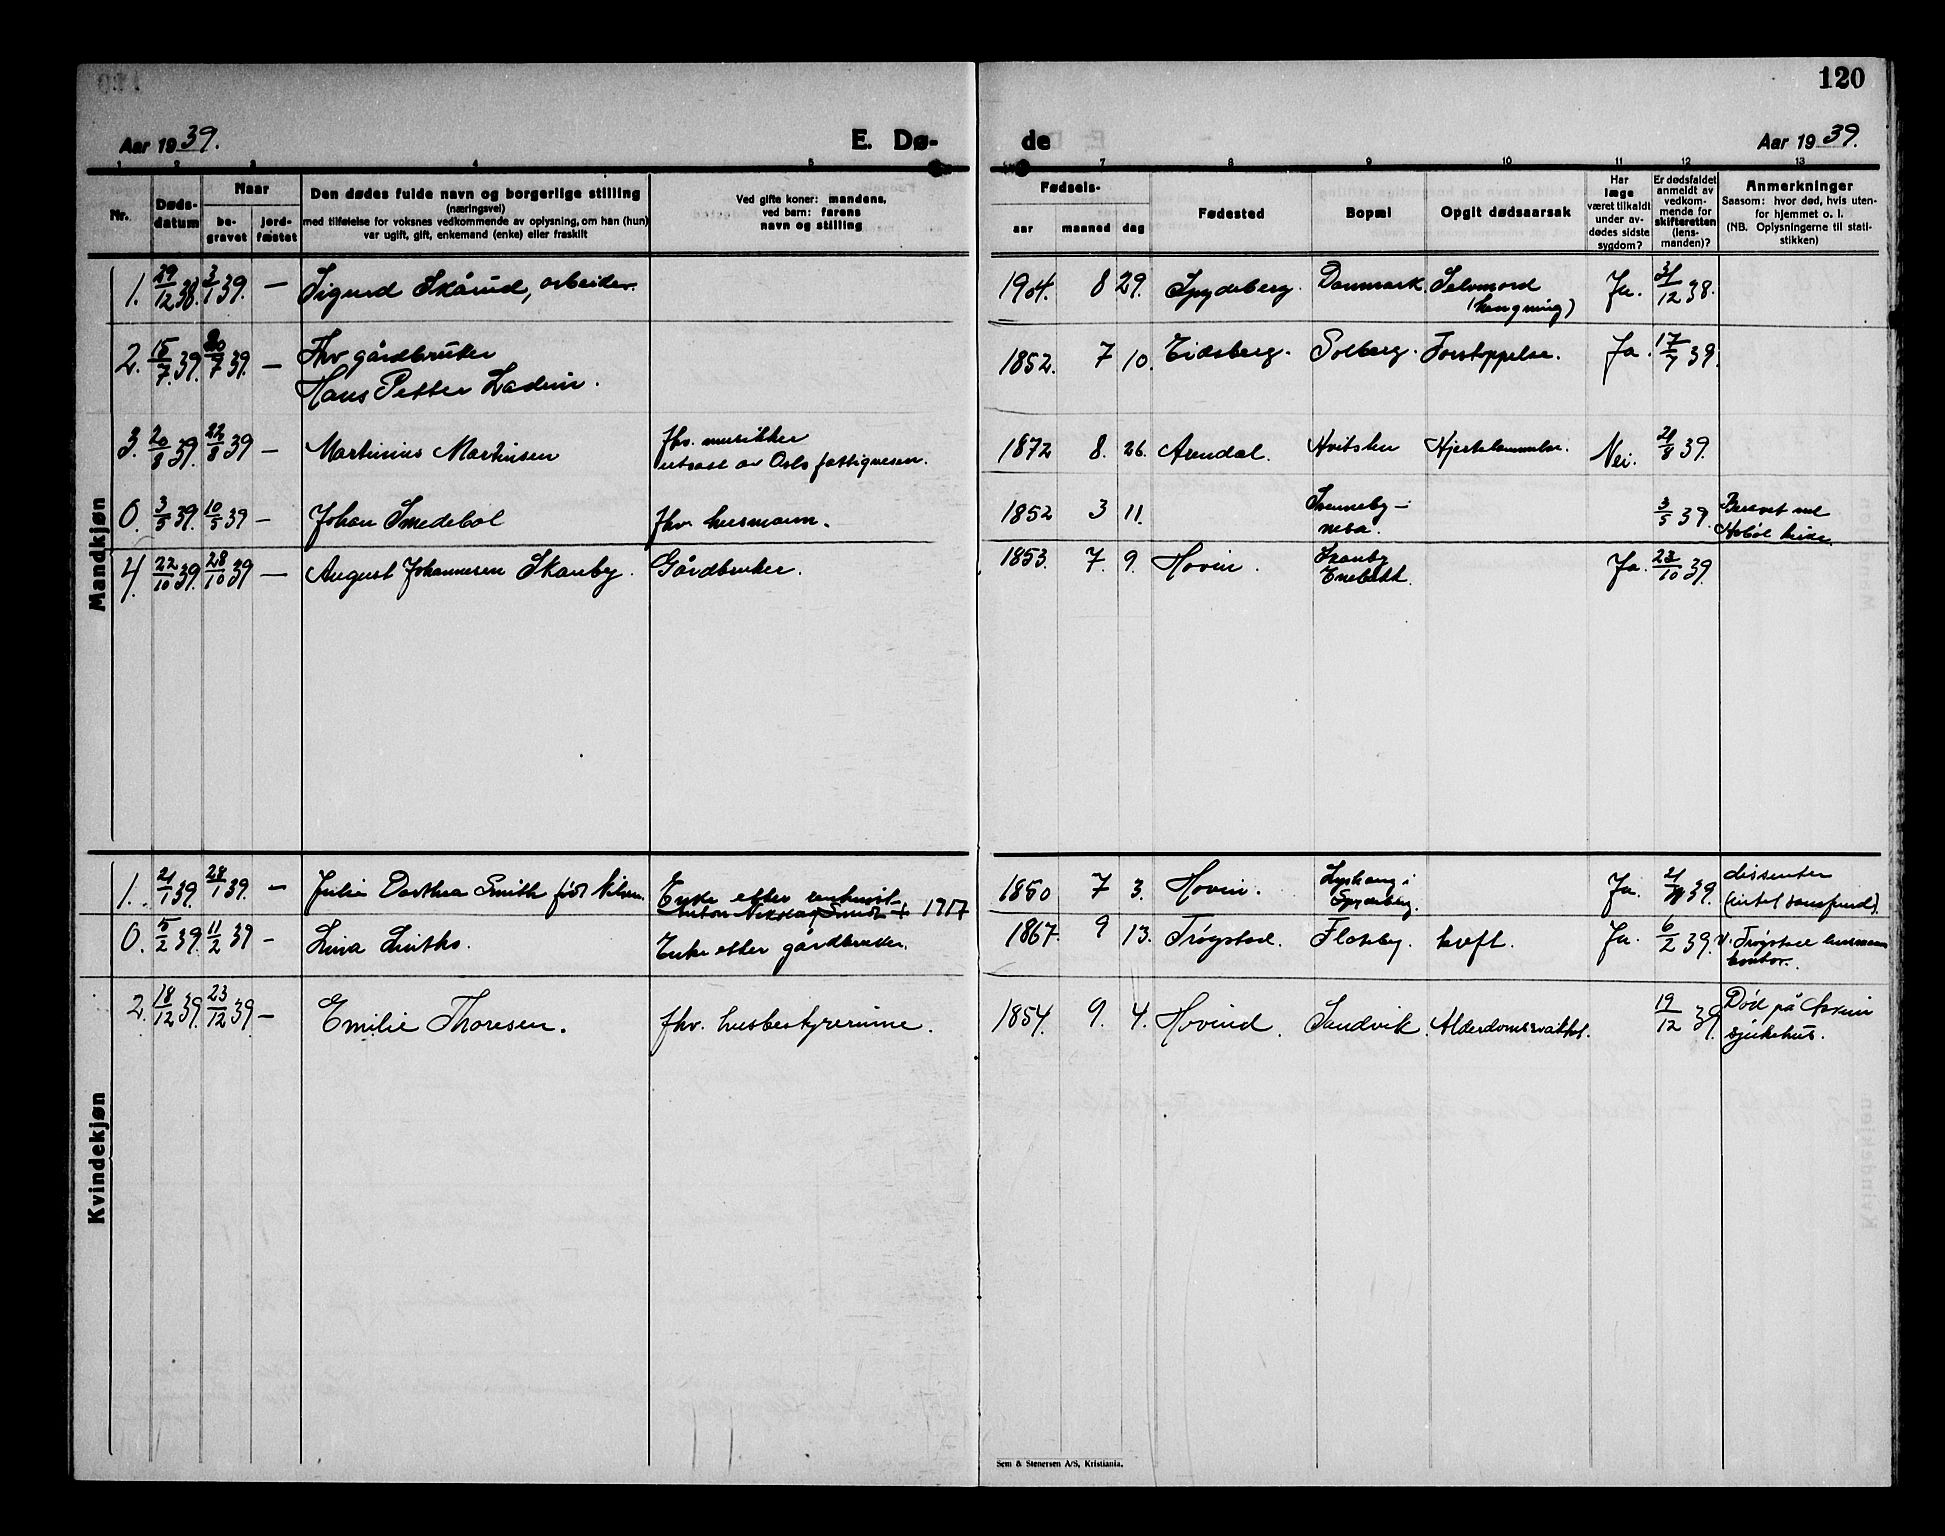 120
Aar 1939.
E. Dø-
de
Aar 1939.
1 2 3 4 5 7 8 9 10 11 12 13
Nr.
Døds-
datum
Naar
be-
gravet
jord-
fæstet
Den dødes fulde navn og borgerlige stilling
(næringsvei)
med tilføielse for voksnes vedkommende av oplysning, om han (hun)
var ugift, gift, enkemand (enke) eller fraskilt
Ved gifte koner: mandens,
ved barn: farens
navn og stilling
Fødsels-
aar maaned dag
Fødested
Bopæl
Opgit dødsaarsak
Har
læge
været tilkaldt
under av-
dødes sidste
sygdom?
Er dødsfaldet
anmeldt av
vedkom-
mende for
skifteretten
(lens-
manden)?
Anmerkninger
Saasom: hvor død, hvis uten-
for hjemmet o. l.
(NB. Oplysningerne til stati-
stikken)
Mandkjøn
1. 29/12 38. 3/1 39. — Sigurd Skårud, arbeider. 1904. 8 29. Spydeberg. Danmark. Selvmord Ja. 31/12 38.
(hengning)
2. 15/7 39. 20/7 39. — Fhv gårdbruker
Hans Petter Ladim. 1852. 7 10. Eidsberg. Solberg. Forstoppelse. Ja. 17/7 39.
3. 20/8 39. 22/8 39 — Martinius Martinsen fhv. musikker
utsatt av Oslo fattigvesen. 1872 8. 26. Arendal. Hvitsten Hjertelammelse. Nei. 21/8 39.
0. 3/5 39. 10/5 39 — Johan Smedebøl fhv. husmann. 1852 3 11. 3/5 39. Gravet ved
Hobøl kirke.
4. 22/10 39. 28/10 39 — August Johannesen Skanby. Gårdbruker. 1853. 7. 9. Hovin. Skanby
Enebakk. Ja. 23/10 39.
Kvindekjøn
1. 21/1 39. 28/1 39. — Julie Dorthea Smith født Nilsen. Enke etter
Anton Nikolay Smith + 1917 1850 7 3. Hovin. i
Spydeberg. Ja. 39. dissenter
0. 5/2 39. 11/2 39 — Lina Enke etter gårdbruker. 1867. 9 13. Trøgstad. Flateby. kreft. Ja. 6/2 39. Trøgstad
2. 18/12 39. 23/12 39 — Emilie Thoresen. fhv. husbestyrerinne. 1854. 9. 4. Hovind. Sandvik. Alderdomssvakhet. 19/12 39. Død på Hovin
sjukehus.
Sem & Stenersen A/S, Kristiania.